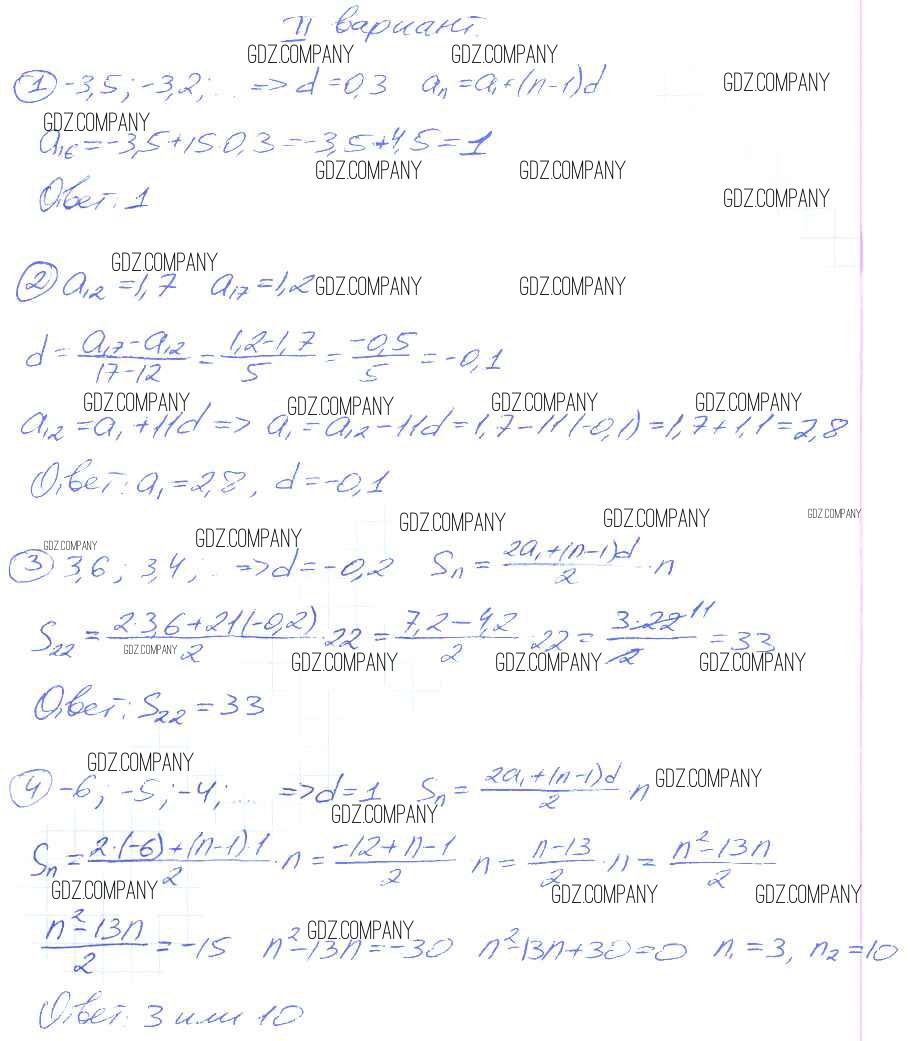 II вариант.
GDZ.COMPANY GDZ.COMPANY
① -3,5; -3,2; ... => d=0,3 aₙ=a₁+(n-1)d GDZ.COMPANY
GDZ.COMPANY
a₁₆=-3,5+15·0,3=-3,5+4,5=1
GDZ.COMPANY GDZ.COMPANY
Ответ: 1 GDZ.COMPANY
GDZ.COMPANY
② a₁₂=1,7 a₁₇=1,2 GDZ.COMPANY GDZ.COMPANY
d = (a₁₇-a₁₂)/(17-12) = (1,2-1,7)/5 = (-0,5)/5 = -0,1
GDZ.COMPANY GDZ.COMPANY GDZ.COMPANY GDZ.COMPANY
a₁₂=a₁+11d => a₁=a₁₂-11d=1,7-11(-0,1)=1,7+1,1=2,8
Ответ: a₁=2,8, d=-0,1
GDZ.COMPANY GDZ.COMPANY GDZ.COMPANY GDZ.COMPANY GDZ.COMPANY
③ 3,6; 3,4; ... => d=-0,2 Sₙ = (2a₁+(n-1)d)/2 · n
S₂₂ = (2·3,6+21(-0,2))/2 · 22 = (7,2-4,2)/2 · 22 = (3·22 11)/2 = 33
GDZ.COMPANY GDZ.COMPANY GDZ.COMPANY GDZ.COMPANY
Ответ: S₂₂=33
GDZ.COMPANY
④ -6; -5; -4; .... => d=1 Sₙ = (2a₁+(n-1)d)/2 · n GDZ.COMPANY
GDZ.COMPANY
Sₙ = (2·(-6)+(n-1)·1)/2 · n = (-12+n-1)/2 · n = (n-13)/2 · n = (n²-13n)/2
GDZ.COMPANY GDZ.COMPANY GDZ.COMPANY
GDZ.COMPANY
(n²-13n)/2 = -15 n²-13n=-30 n²-13n+30=0 n₁=3, n₂=10
Ответ: 3 или 10